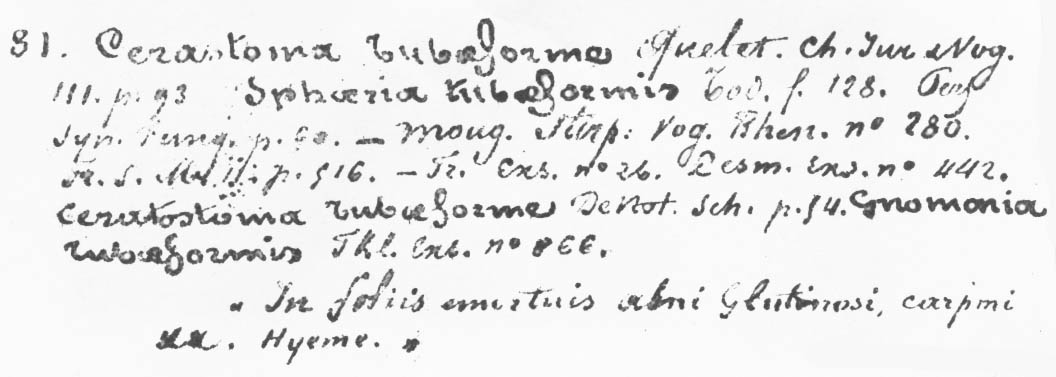 81. Cerastoma tubæforme Quelet. Ch. Jur & Vog.
III. p. 93 Sphæria tubæformis Tod. f. 128. Pers
Syn. Fung. p. 60. — Moug. Stirp. Vog. Rhen. nº 280.
Fr. S. M. II. p. 516. — Fr. Exs. nº 26. Desm. Exs. nº 442.
Ceratostoma tubæforme DeNot. Sch. p. 54. Gnomonia
tubæformis Fkl. Exs. nº 866.
„ In foliis emortuis alni Glutinosi, carpini
Hyeme. „